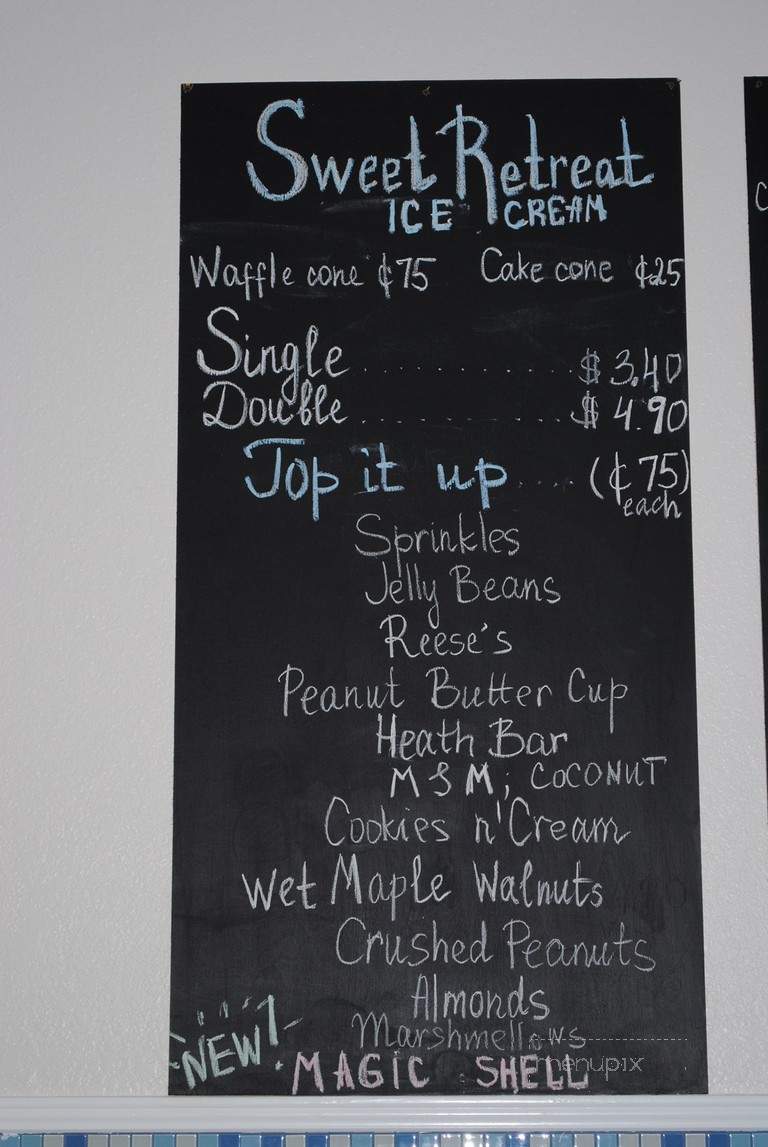 Sweet Retreat
ICE CREAM
Waffle cone ¢75 Cake cone ¢25
Single ............ $ 3.40
Double ............ $ 4.90
Top it up ..... (¢75)
each
Sprinkles
Jelly Beans
Reese's
Peanut Butter Cup
Heath Bar
M & M; COCONUT
Cookies n' Cream
Wet Maple Walnuts
Crushed Peanuts
Almonds
Marshmellows
NEW!
MAGIC SHELL
menupix
C